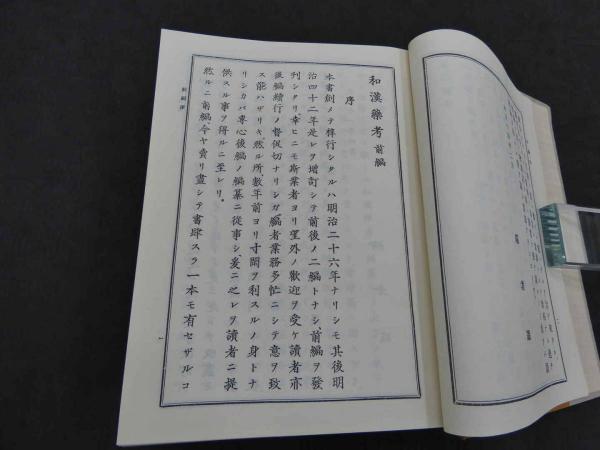 和漢藥考 前編
序
本書創メテ梓行シタルハ明治二十六年ナリシモ其後明
治四十二年是レヲ增訂シテ前後ノ二編トナシ、前編ヲ發
刊シタリ、幸ヒニモ斯業者ヨリ望外ノ歡迎ヲ受ケ讀者亦
後編續行ノ督促切ナリシガ編者業務多忙ニシテ意ヲ致
ス能ハザリキ、然ル所、數年前ヨリ寸閑ヲ利スルノ身トナ
リシカバ專心後編ノ編纂ニ從事シ、爰ニ之レヲ讀者ニ提
供スル事ヲ得ルニ至レリ。
然ルニ前編、今ヤ賣リ盡シテ書肆スラ一本モ有セザルコ